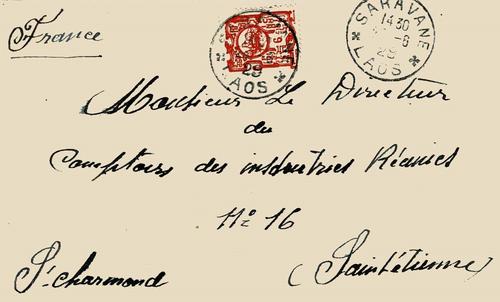 France
SARAVANE
1430
-6
29
LAOS
29
LAOS
Monsieur Le Directeur
du
Comptoirs des industries Réunies
N° 16
St. charmond
(Saint étienne)